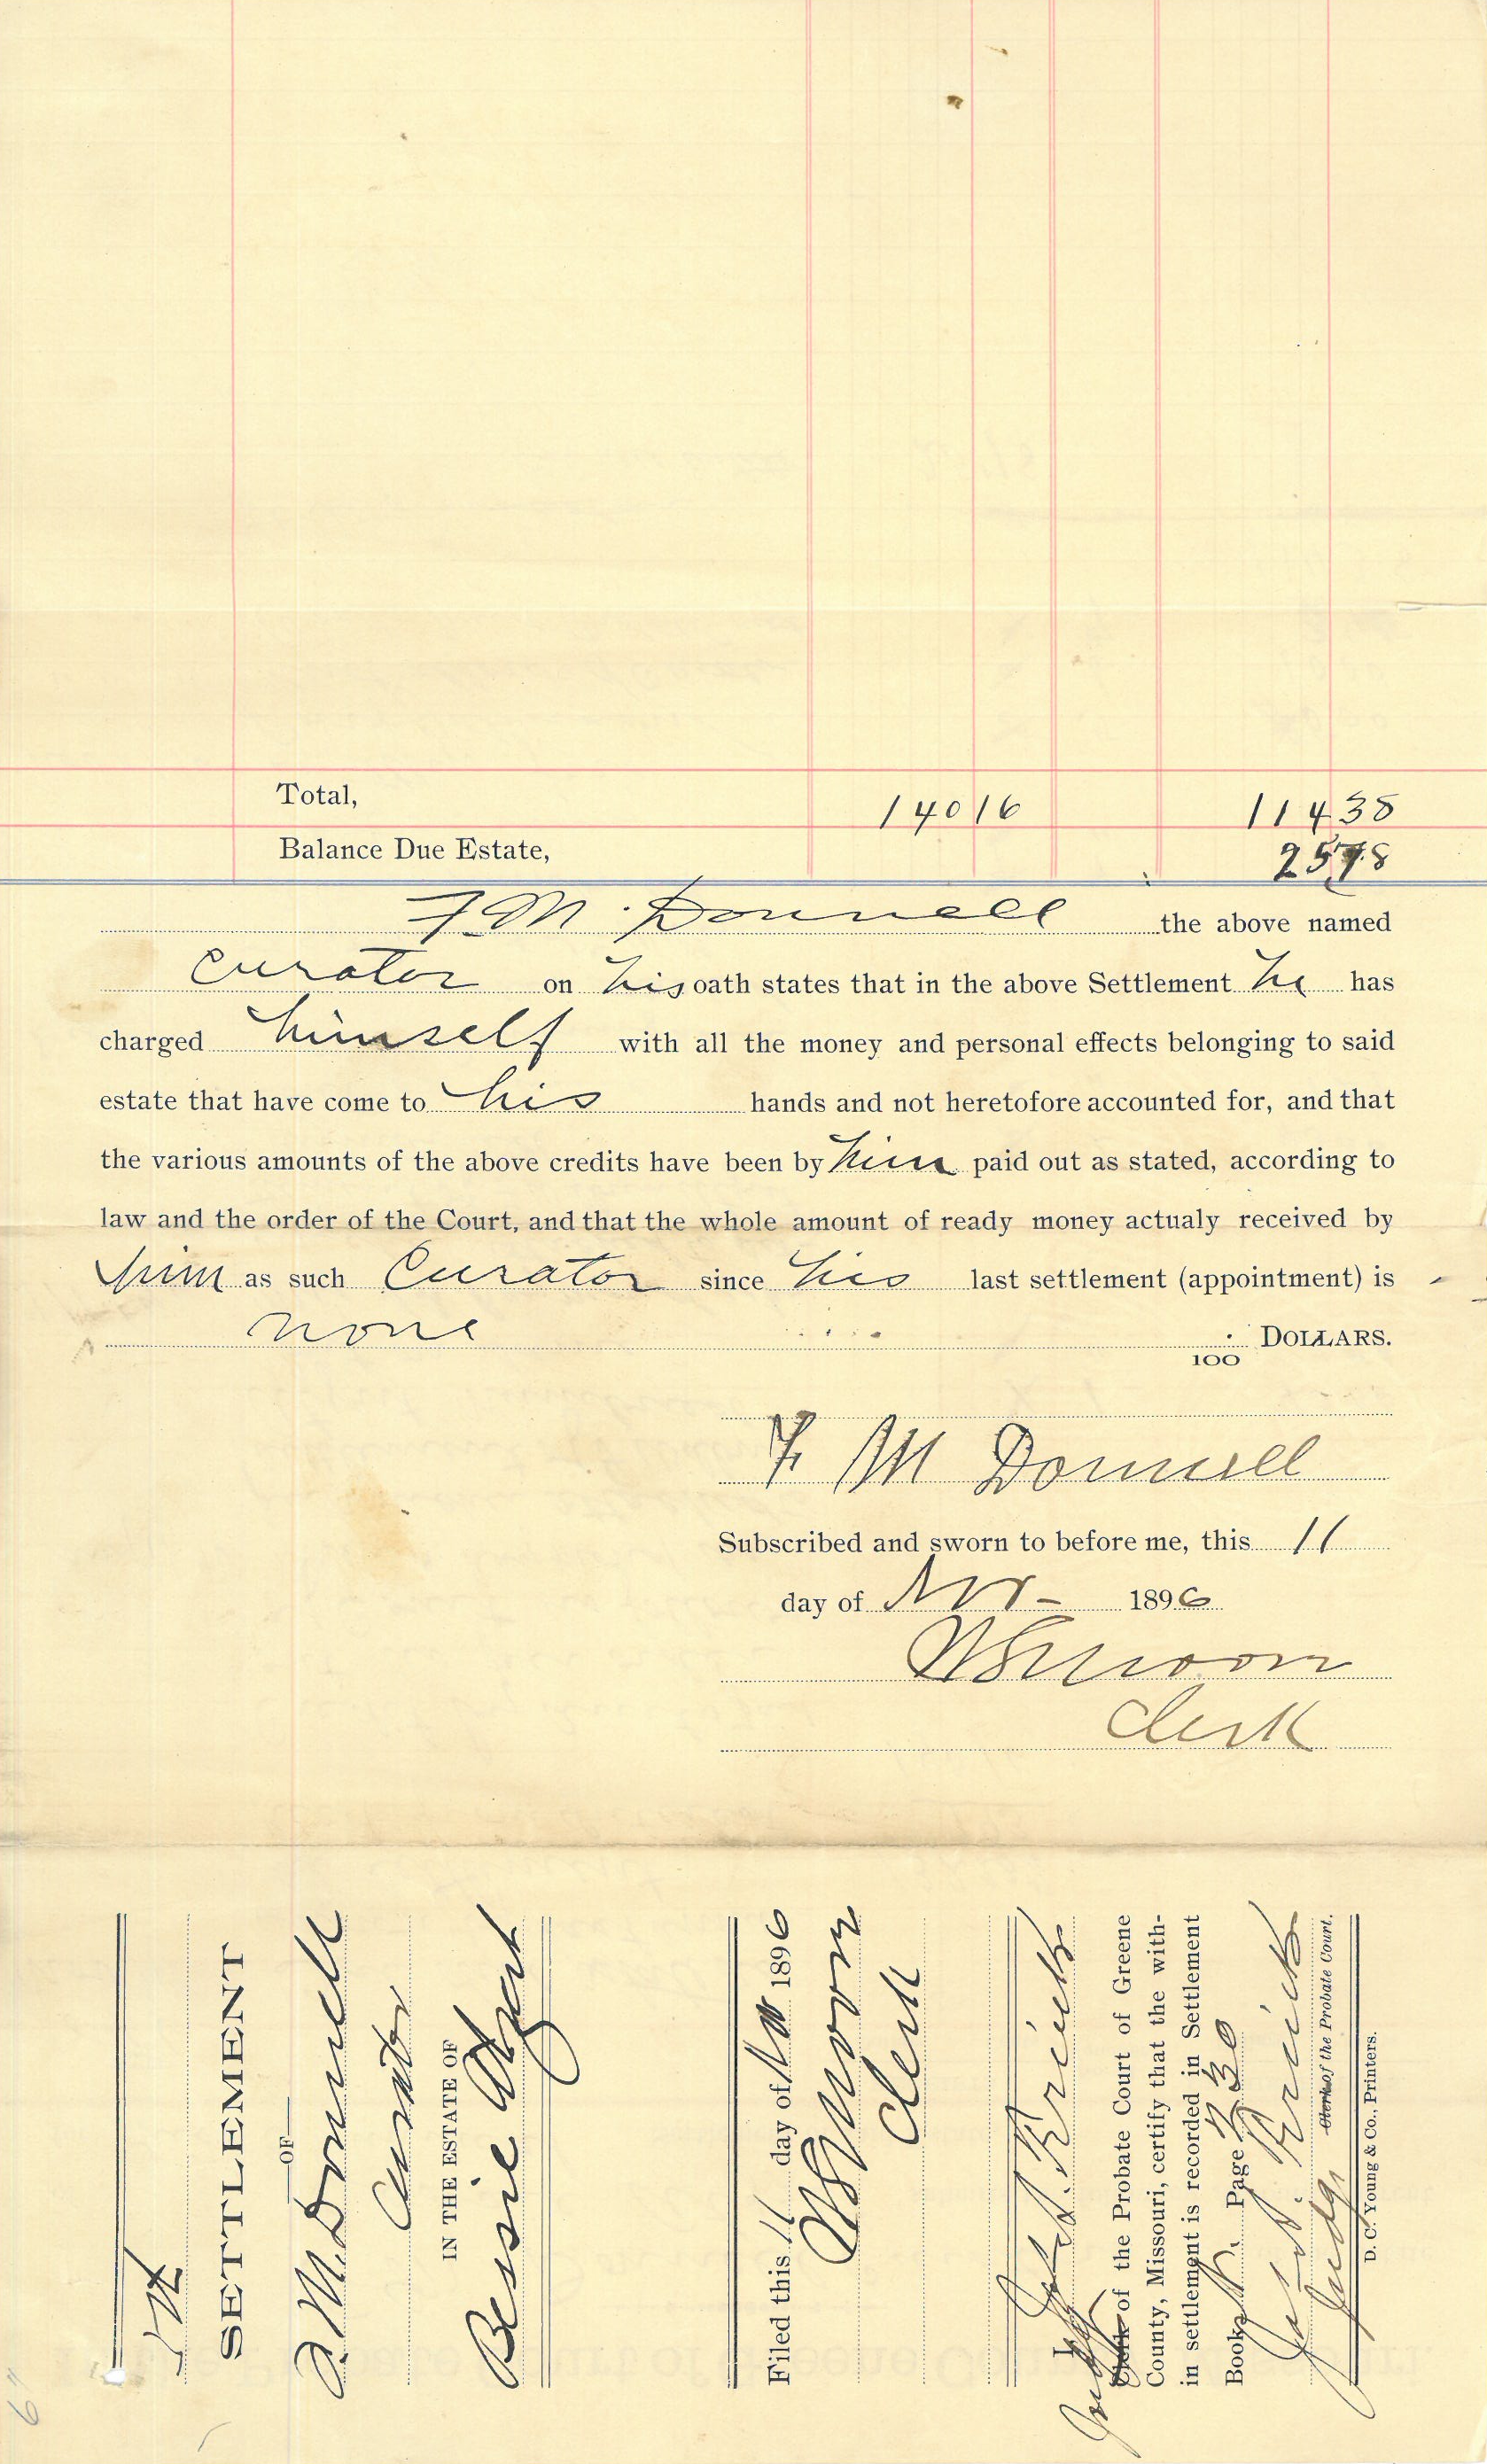 Total, 140 16 114 38
Balance Due Estate, 25 78
F. M. Donnell the above named
curator on his oath states that in the above Settlement he has
charged himself with all the money and personal effects belonging to said
estate that have come to his hands and not heretofore accounted for, and that
the various amounts of the above credits have been by him paid out as stated, according to
law and the order of the Court, and that the whole amount of ready money actualy received by
him as such Curator since his last settlement (appointment) is
none
100 DOLLARS.
F M Donnell
Subscribed and sworn to before me, this 11
day of Nov - 1896
Clerk
SETTLEMENT
OF
F. M. Donnell
Curator
IN THE ESTATE OF
Bessie
Filed this 11 day of Nov 1896
Clerk
I,
Judge Clerk of the Probate Court of Greene
County, Missouri, certify that the with-
in settlement is recorded in Settlement
Book Page
Judge Clerk of the Probate Court.
D. C. Young & Co., Printers.
6"